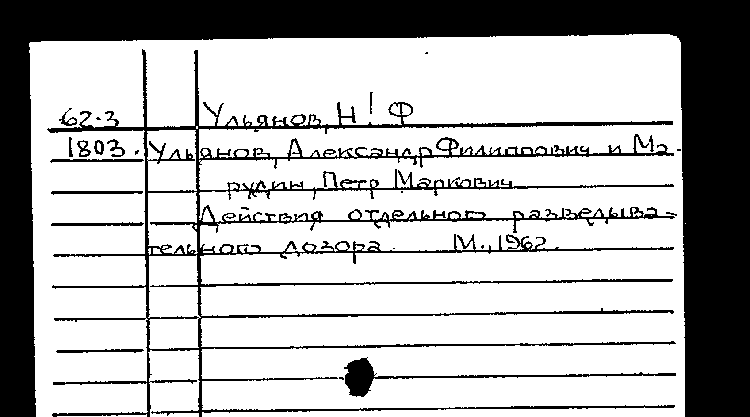 62-3 Ульянов, Н! Ф
1803. Ульянов, Александр Филиппович и Ма-
рудин, Петр Маркович
Действия отдельного разведыва=
тельного дозора М., 1962.